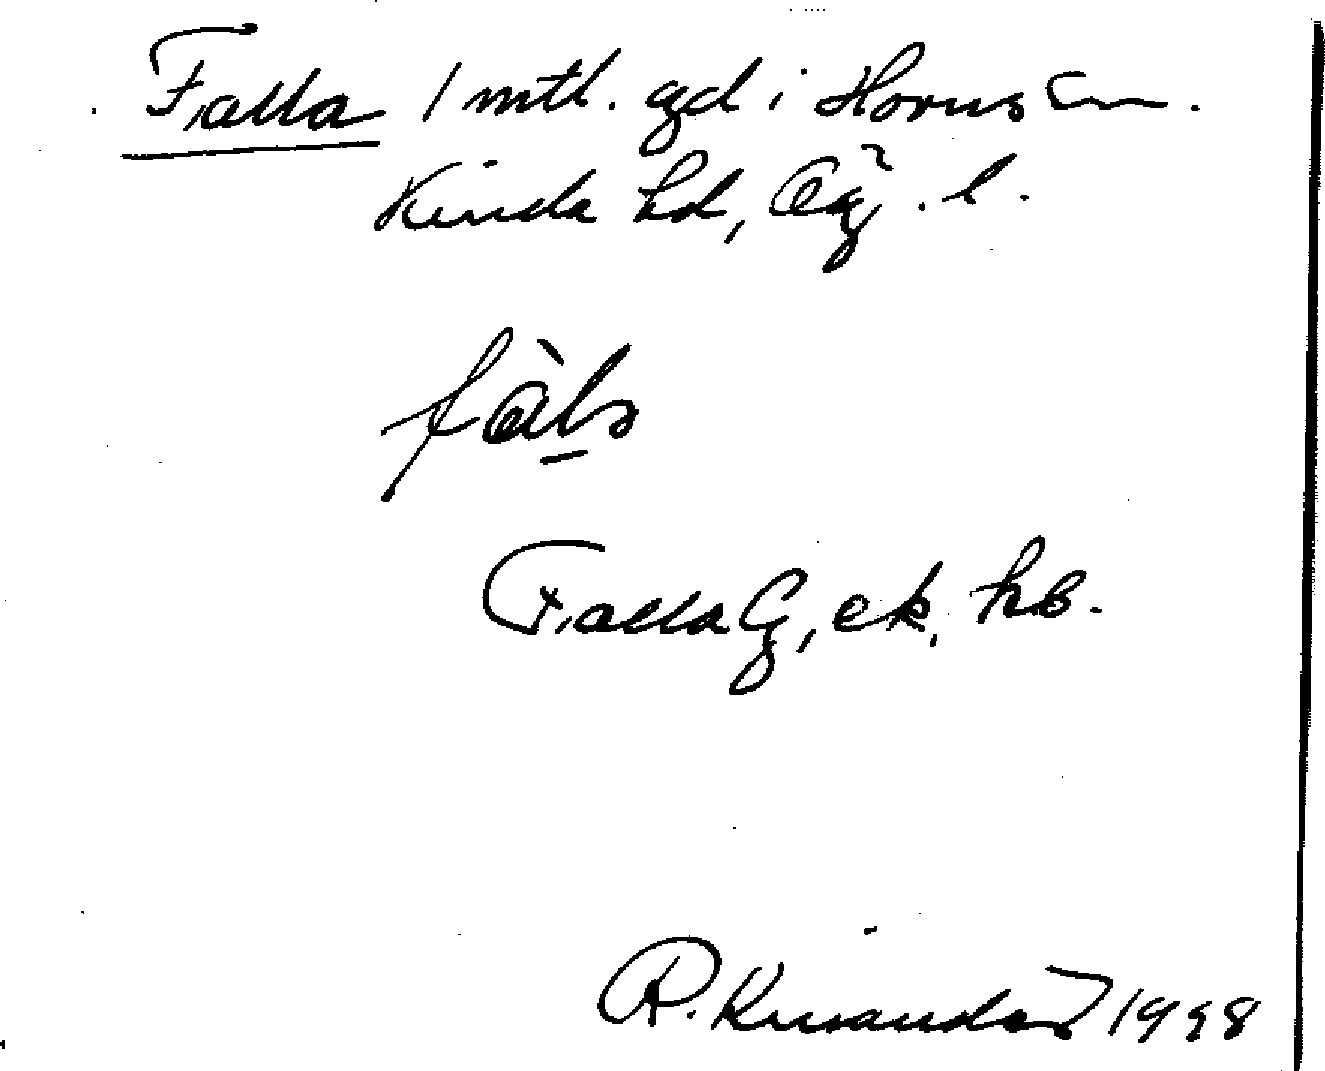 Falla 1 mtl. gd i Horns sn.
Kinda hd, Ög. l.
fàla
Falla G, ek, hb.
R. Kinander 1998